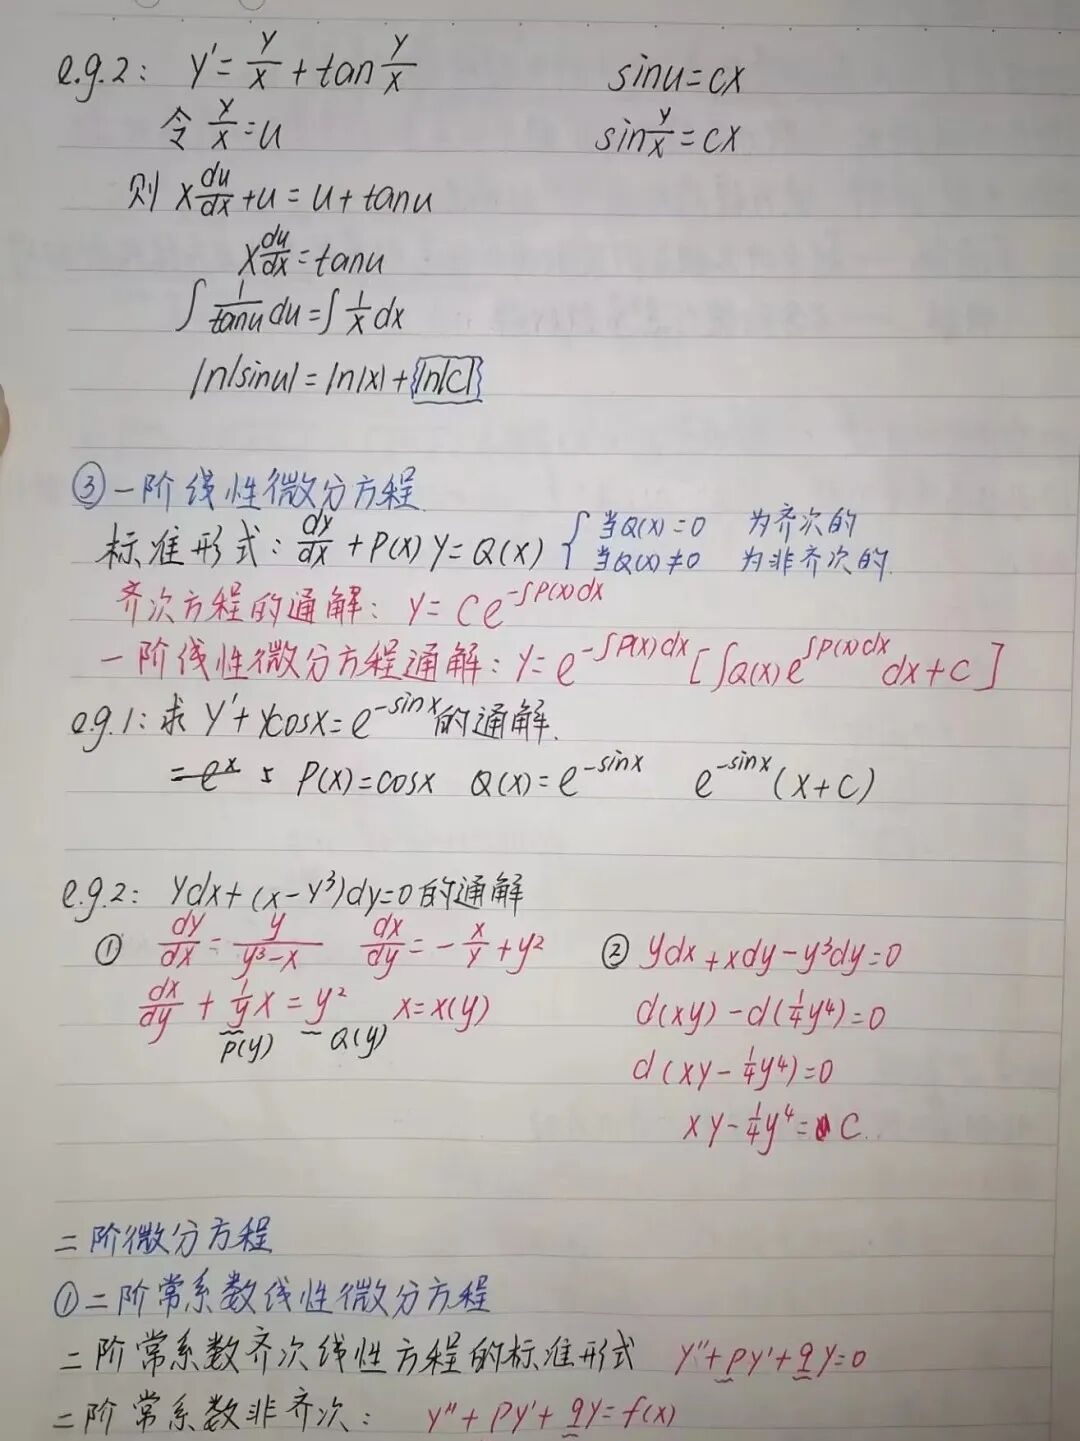 e.g.2: y'=y/x+tan y/x
令 y/x=u
则 x du/dx+u=u+tanu
x du/dx=tanu
∫ 1/tanu du=∫ 1/x dx
ln|sinu|=ln|x|+ln|c|
sinu=cx
sin y/x=cx
③一阶线性微分方程
标准形式: dy/dx+P(x)y=Q(x) { 当Q(x)=0 为齐次的
当Q(x)≠0 为非齐次的.
齐次方程的通解: y=Ce^{-∫P(x)dx}
一阶线性微分方程通解: y=e^{-∫P(x)dx}[∫Q(x)e^{∫P(x)dx}dx+C]
e.g.1: 求 y'+ycosx=e^{-sinx}的通解.
P(x)=cosx Q(x)=e^{-sinx} e^{-sinx}(x+C)
e.g.2: ydx+(x-y³)dy=0的通解
① dy/dx=y/(y³-x) dx/dy=-x/y+y²
dx/dy+1/y x=y² x=x(y)
P(y) Q(y)
② ydx+xdy-y³dy=0
d(xy)-d(¼y⁴)=0
d(xy-¼y⁴)=0
xy-¼y⁴=C.
二阶微分方程
①二阶常系数线性微分方程
二阶常系数齐次线性方程的标准形式 y''+py'+qy=0
二阶常系数非齐次: y''+py'+qy=f(x)